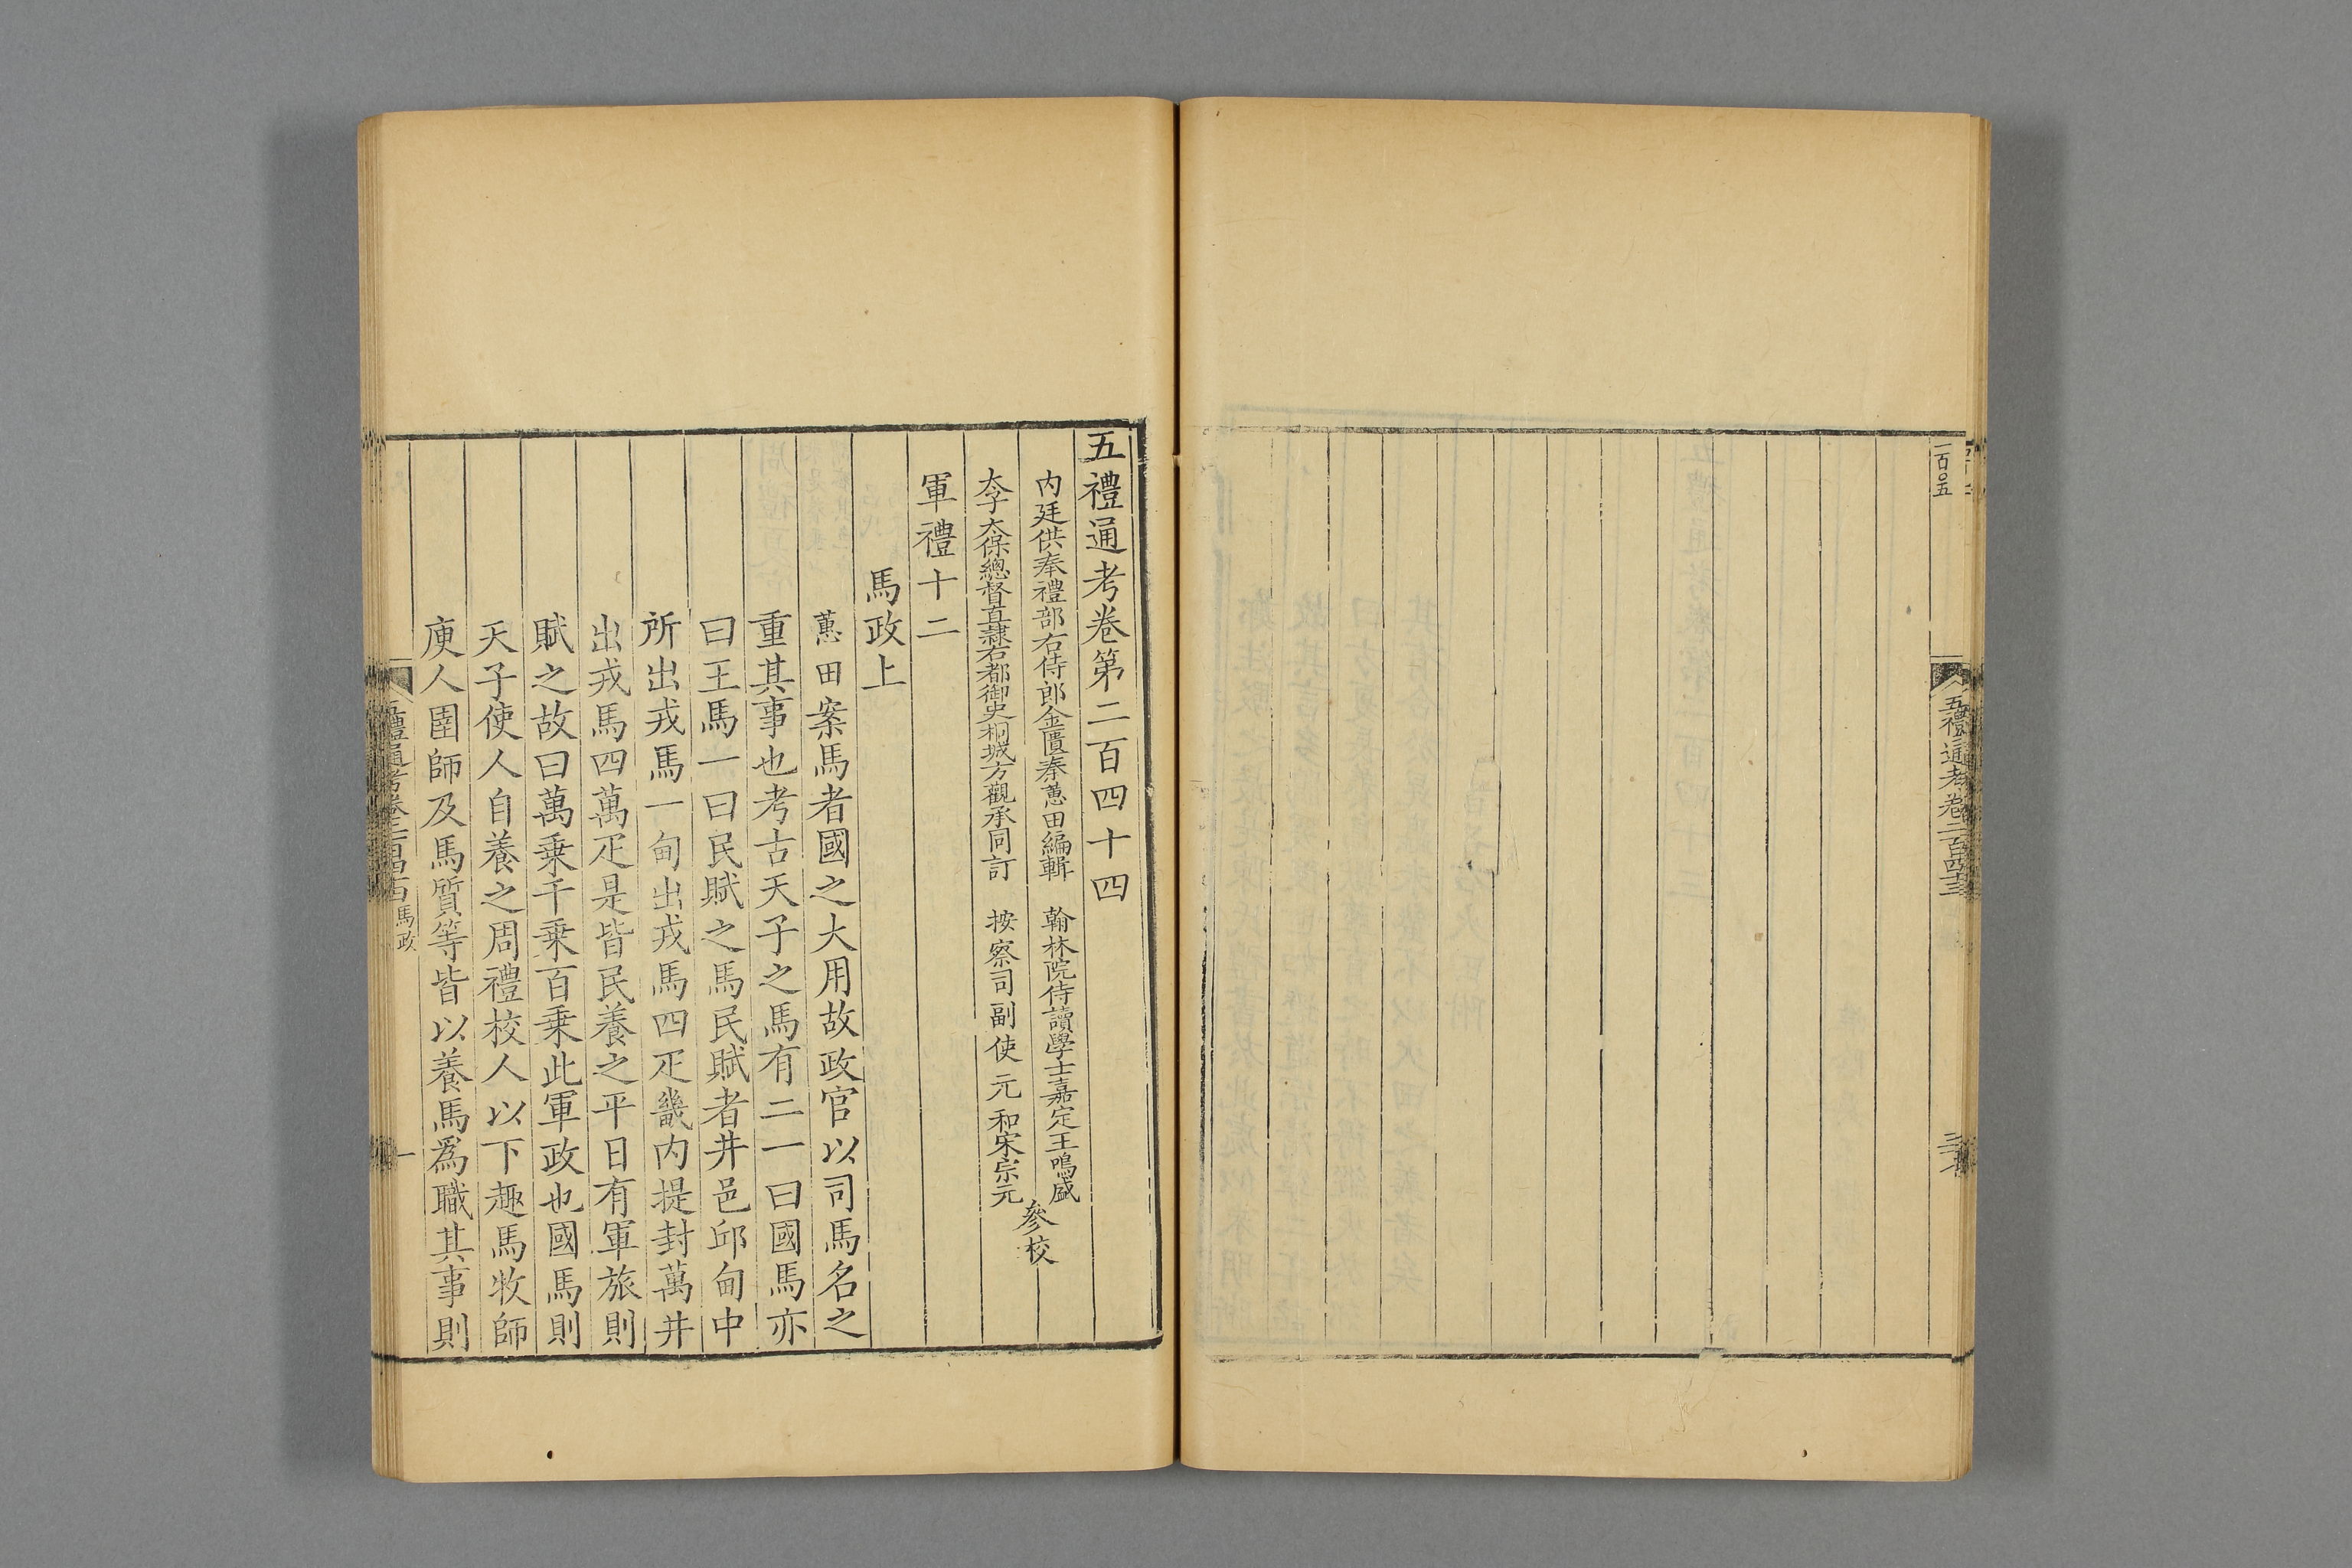 一百〇五
五禮通考卷二百四十三
五禮通考卷第二百四十四
内廷供奉禮部右侍郎金匱秦蕙田編輯 翰林院侍讀學士嘉定王鳴盛
太子太保總督直隸右都御史桐城方觀承同訂 按察司副使元和宋宗元
參校
軍禮十二
馬政上
蕙田案馬者國之大用故政官以司馬名之
重其事也考古天子之馬有二一曰國馬亦
曰王馬一曰民賦之馬民賦者井邑邱甸中
所出戎馬一甸出戎馬四疋畿内提封萬井
出戎馬四萬疋是皆民養之平日有軍旅則
賦之故曰萬乗千乗百乗此軍政也國馬則
天子使人自養之周禮校人以下趣馬牧師
庾人圉師及馬質等皆以養馬爲職其事則
五禮通考卷二百四十四 馬政
一